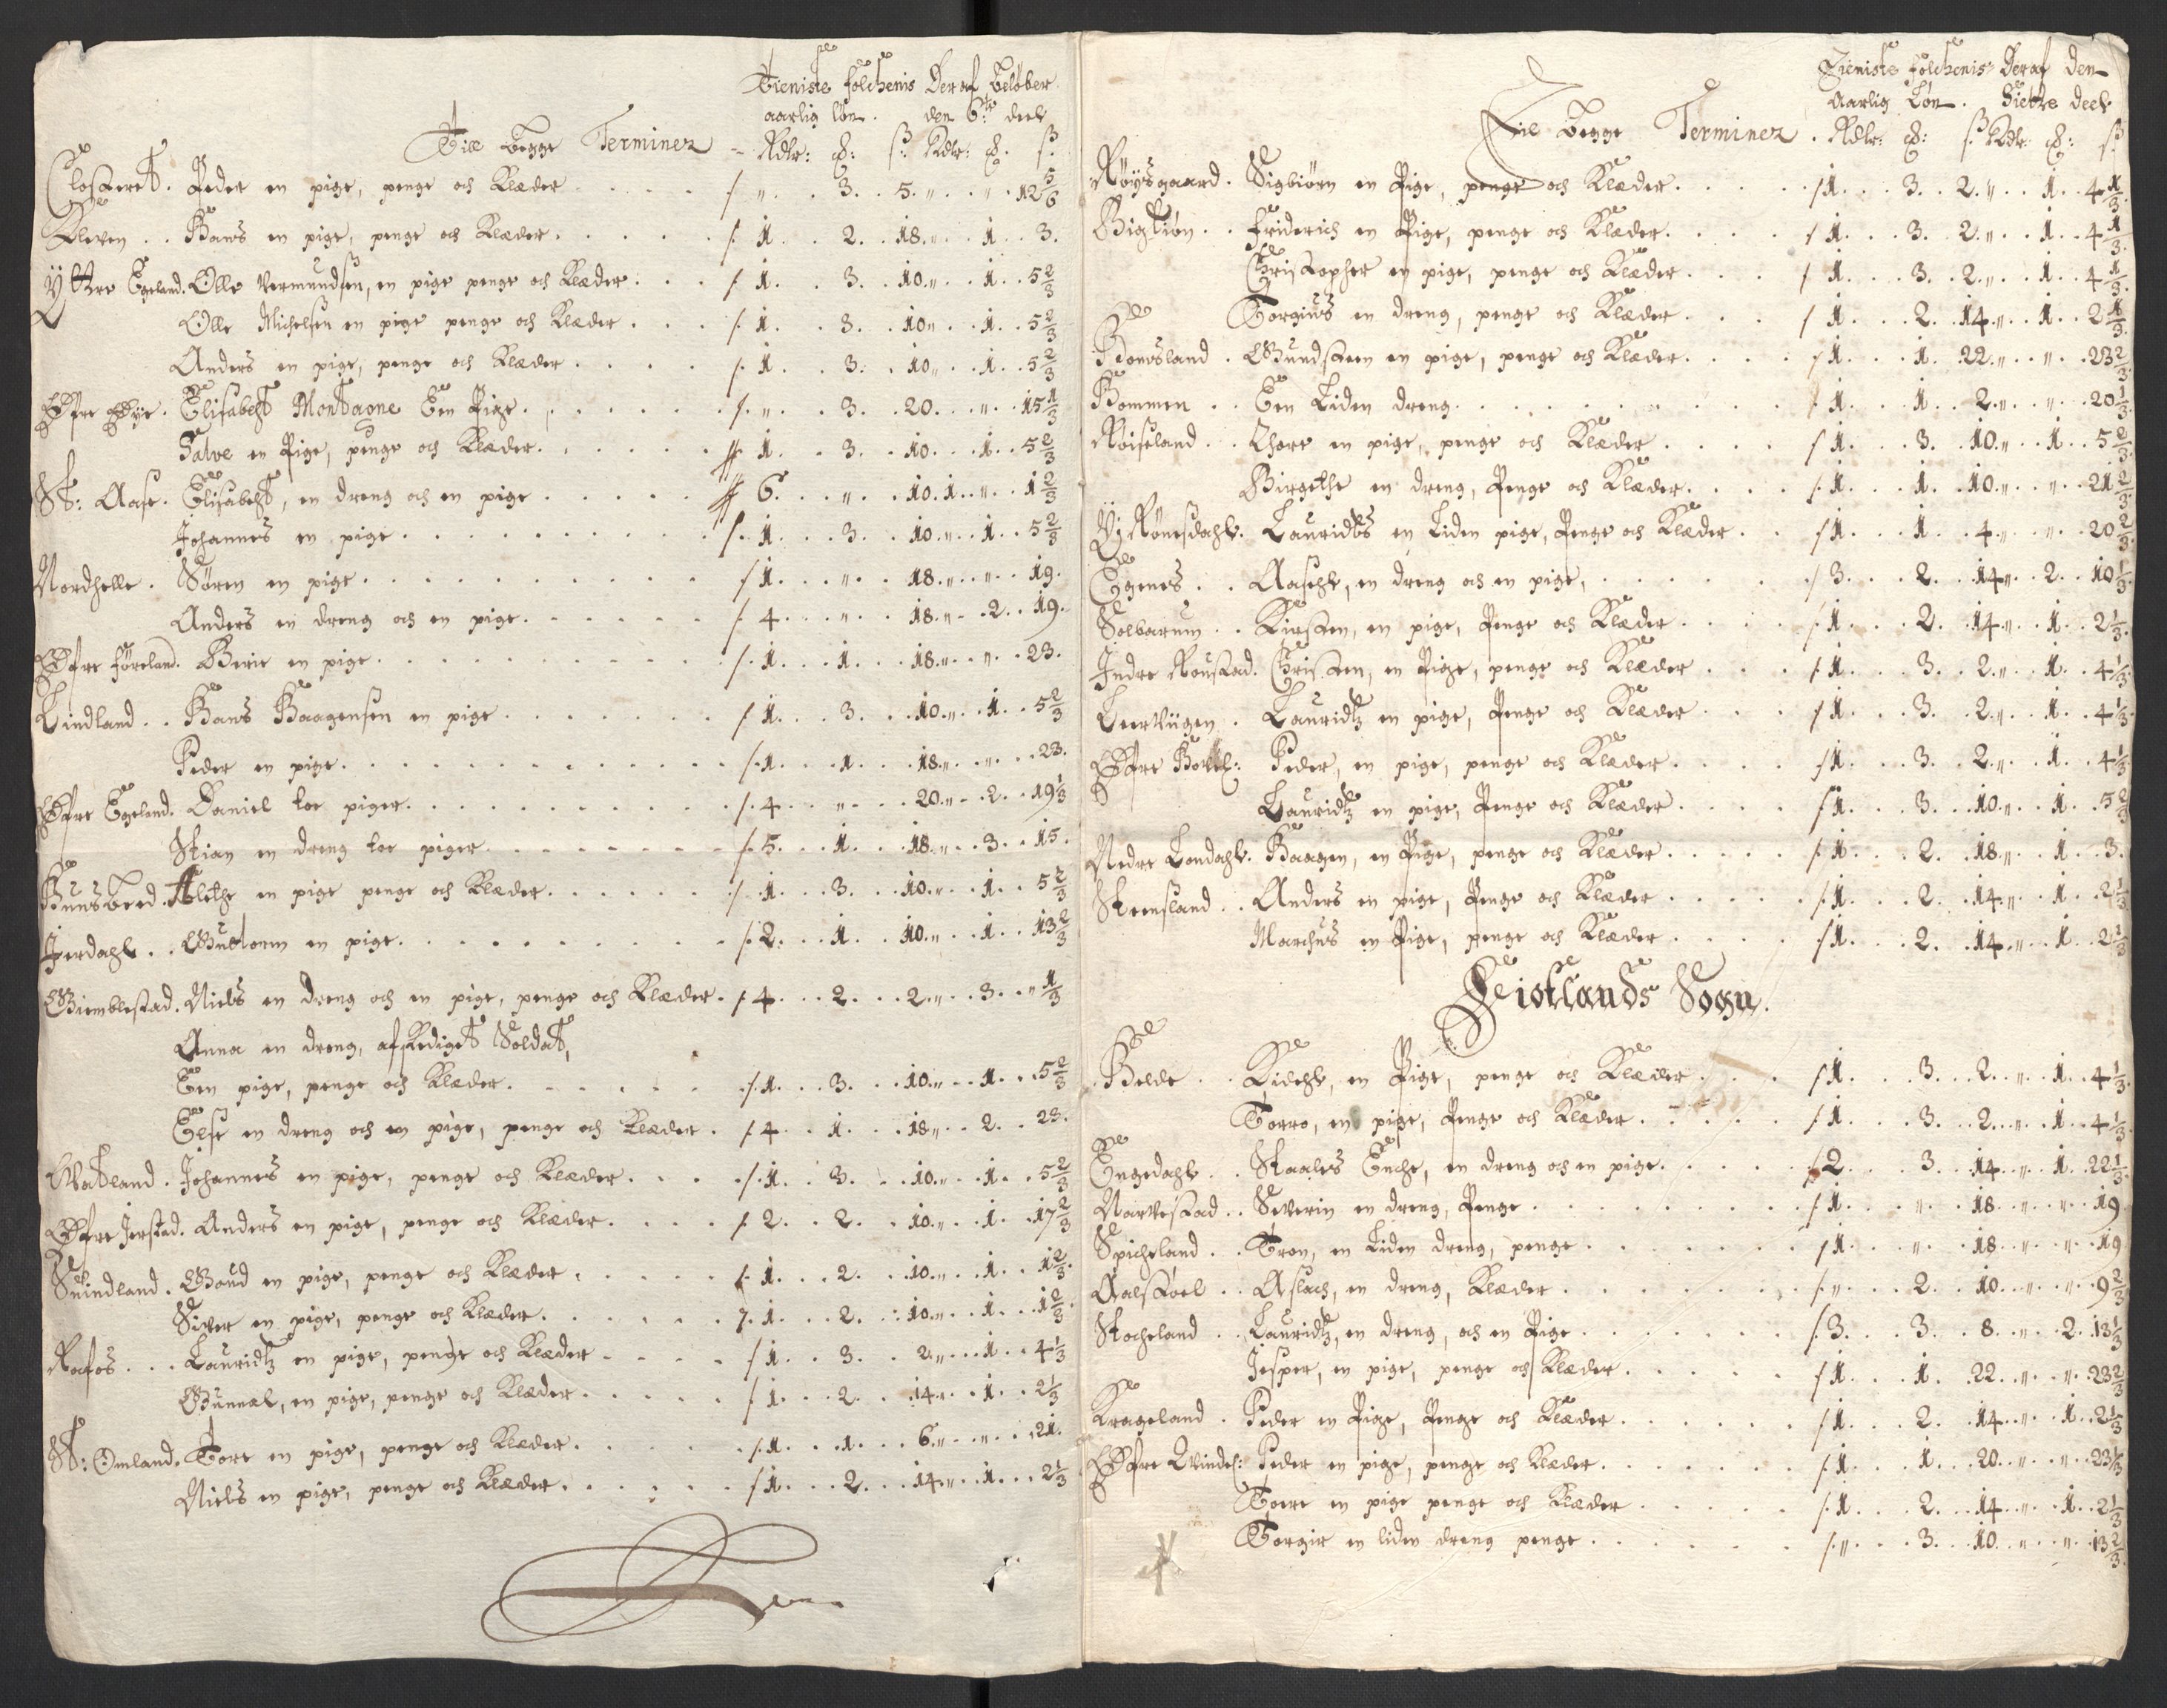 Tieniste folchenis Deraf beløber
aarlig løn. den 6te deel
Till begge Terminer - Rdlr: ₰: ß: Rdlr: ₰. ß.
Closteret. Peder en pige, penge och Klæder . . . . / „ . 3. 5. „ . „ . 12 5/6
Kleven . . Hans en pige, penge och Klæder . . . . . /. 1. 2. 18. „ . 1. 3.
Ytre Egeland. Olle Vermundsen, en pige penge och Klæder . . . /. 1. 3. 10. „ . 1. 5 2/3
Olle Michelsen en pige penge och Klæder . . . /. 1. 3. 10 „ . 1. 5 2/3
Anders en pige, penge och Klæder . . . . /. 1. 3. 10. „ . 1. 5 2/3
Øfre Øye. Elisabeht Montagne Een Pige . . . . . /. „ . 3. 20. „ . 15 1/3
Salve en Pige, penge och Klæder . . . . . 1. 3. 10. 1. 5 2/3
St: Aase. Elisabeht, en dreng och en pige . . . . . 6. „ . 10. 1. „ . 1 2/3
Johannes en pige . . . . . . . . /. 1. 3. 10. „ . 1. 5 2/3
Nordhelle. Søren en pige . . . . . . . . / 1. „ . 18. „ . „ . 19.
Anders en dreng och en pige . . . . . /. 4. „ . 18. „ . 2. 19.
Øfre føreland. Berit en pige . . . . . . . . /. 1. 1. 18. „ . „ . 23.
Lindland . . Hans Haagensen en pige . . . . . . / 1. 3. 10. „ . 1. 5 2/3
Peder en pige . . . . . . . . . /. 1. 1. 18. „ . „ . 23.
Øfre Egeland. Daniel toe piger . . . . . . . /. 4. „ . 20. „ . 2. 19 1/3
Stian en dreng toe piger . . . . . . /. 5. 1. 18. „ . 3. 15.
Hunsbeed. Alethe en pige penge och Klæder . . . . . /. 1. 3. 10. „ . 1. 5 2/3
Jerdahl . . Guttorm en pige . . . . . . . . /. 2. 1. 10. „ . 1. 13 2/3
Gimblestad. Niels en dreng och en pige, penge och Klæder. / 4. 2. 2. „ . 3. „ 1/3
Anna en dreng, afskediget Soldat,
Een pige, penge och Klæder . . . . . /. 1. 3. 10. „ . 1. 5 2/3
Else en dreng och en pige, penge och Klæder . / 4. 1. 18. „ . 2. 23.
Watland. Johannes en pige, penge och Klæder . . . . /. 1. 3. 10. „ . 1. 5 2/3
Øfre Jerstad. Anders en pige, penge och Klæder . . . . /. 2. 2. 10. „ . 1. 17 2/3
Suindland. Goud en pige, penge och Klæder . . . . . /. 1. 2. 10. „ . 1. 1 2/3.
Siver en pige, penge och Klæder . . . . . /. 1. 2. 10. „ . 1. 1 2/3.
Rafos . . . Lauridtz en pige, penge och Klæder . . . . / 1. 3. 2. „ . 1. 4 1/3
Gunval, en pige, penge och Klæder . . . . . / 1. 2. 14. „ . 1. 2 1/3
St: Omland. Tore en pige, penge och Klæder . . . . . /. 1. 1. 6. „ . „ . 21.
Niels en pige, penge och Klæder . . . . . / 1. 2. 14. „ . 1. 2 1/3
Tieniste folchenis Deraf den
Aarlig Løn. Siette deel
Till begge Terminer . Rdlr: ₰: ß. Rdlr: ₰: ß
Røysgaard. Sigbiørn en Pige, penge och Klæder . . . . / 1. 3. 2. „ . 1. 4 1/3
Bigtiøn . . Friderich en Pige, penge och Klæder . . . . / 1. 3. 2. „ . 1. 4 1/3.
Christopher en pige, penge och Klæder . . . / 1. 3. 2. „ . 1. 4 1/3.
Torgius en dreng, penge och Klæder . . . / 1. 2. 14. „ . 1. 2 1/3.
Gundsteen en pige, penge och Klæder . . . / 1. 1. 22. „ . „ . 23 2/3
Hommen . . Een Liden dreng . . . . . . . . / 1. 1. 2. „ . „ . 20 1/3.
Røiseland . . Thore en pige, penge och Klæder . . . . / 1. 3. 10. „ . 1. 5 2/3.
Birgethe en dreng, Penge och Klæder . . . . /. 1. 1. 10. „ . „ . 21 2/3.
Lauridts en Liden pige, Penge och Klæder . . / 1. 1. 4. „ . „ . 20 2/3.
Egenes . . Aasehl, en dreng och en pige, . . . . . . / 3. 2. 14 „ . 2. 10 1/3.
Solbarum . . Kirsten, en pige, Penge och Klæder . . . . /. 1. 2. 14. „ . 1. 2 1/3.
Indre Roustad. Christen, en Pige, penge och Klæder . . . /. 1. 3. 2. „ . 1. 4 1/3.
Leervigen . Lauridtz en pige, Penge och Klæder . . . / 1. 3. 2. „ . 1. 4 1/3.
Peder, en pige, penge och Klæder . . . . / 1. 3. 2. „ . 1. 4 1/3.
Lauridtz en pige, Penge och Klæder . . . . / 1. 3. 10. „ . 1. 5 2/3
Nedre Londahl. Haagen, en Pige, penge och Klæder . . . . /. 1. 2. 18. „ . 1. 3.
Steensland . . Anders en pige, Penge och Klæder . . . . /. 1. 2. 14. „ . 1. 2 1/3
Marchus en Pige, penge och Klæder . . . . / 1. 2. 14. „ . 1. 2 1/3
Feistlands Sogn.
Helde . . Kidehl, en Pige, penge och Klæder . . . / 1. 3. 2. „ . 1. 4 1/3.
Torro, en pige, Penge och Klæder . . . . . / 1. 3. 2. „ . 1. 4 1/3.
Engedahl . . Staales Enche, en dreng och en pige . . . . / 2. 3. 14. „ . 1. 22 1/3
Narvestad . . Severin en dreng, Penge . . . . . . . / 1. „ . 18. „ . „ . 19
Spicheland . . Tron, en Liden dreng, penge . . . . . . / 1. „ . 18. „ . „ . 19
Aalstoel . . Aslach, en dreng, Klæder . . . . . . /. „ . 2. 10. „ . „ . 9 2/3
Stocheland . . Lauridtz, en dreng, och en Pige . . . . . . /. 3. 3. 8. „ . 2. 13 1/3
Jesper, en pige, penge och Klæder . . . . . / 1. 1. 22. „ . „ . 23 2/3
Krageland . Peder en Pige, Penge och Klæder . . . . . / 1. 2. 14. „ . 1. 2 1/3
Øfre Qvindl: Peder en pige, penge och Klæder . . . . . /. 1 1. 20. „ . „ . 23 1/3
Toere en pige penge och Klæder . . . . . /. 1. 2. 14. „ . 1. 2 1/3
Torgir en liden dreng penge . . . . . . /. „ . 3. 10. „ . „ . 13 2/3.